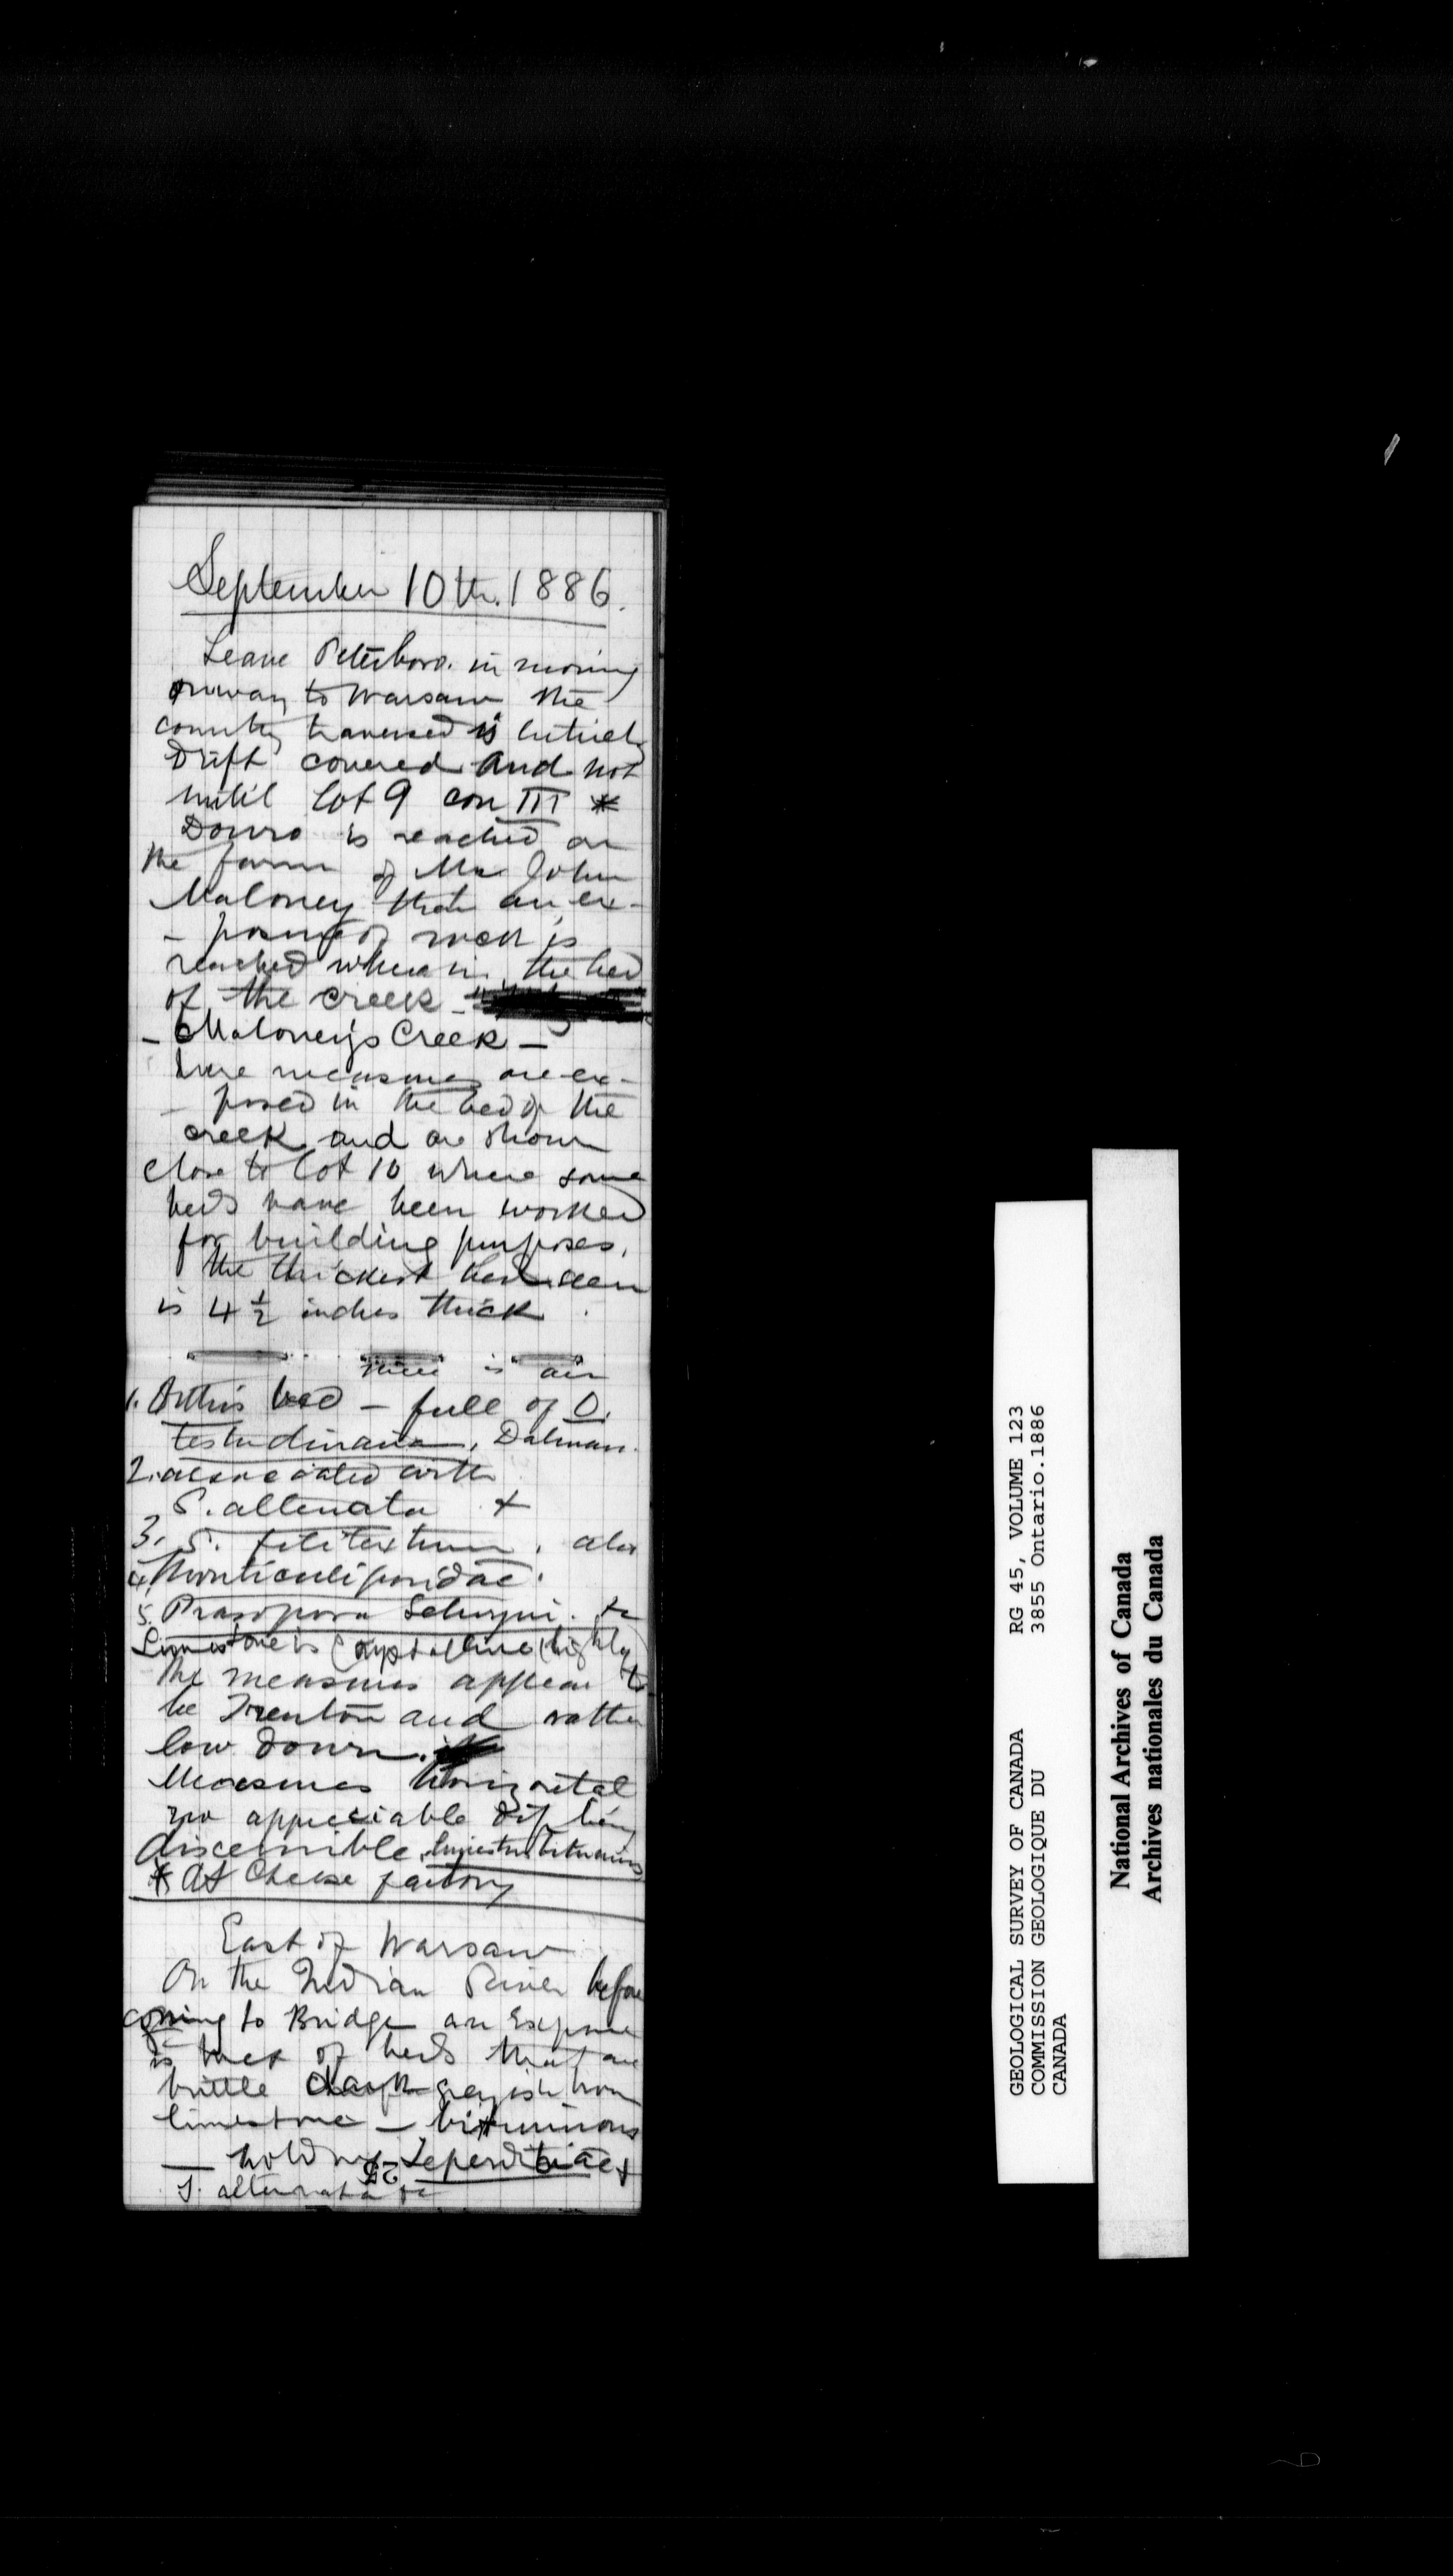 September 10th. 1886.
Leave Peterboro. in morning
on way to Warsaw the
country traversed is entirely
Drift covered and not
until lot 9 con III *
Douro is reached on
the farm of Mr John
Maloney that an ex-
- posure of rock is
reached where in the bed
of the creek -
- Maloney's Creek -
here measures are ex-
- posed in the bed of the
creek and are shown
close to lot 10 where some
beds have been worked
for building purposes.
the thickest bed seen
is 4 1/2 inches thick.
there is an
1. Orthis bed - full of O.
testudinaria, Dalman.
2. associated with
S. alternata +
3. S. filitextum, also
4. Monticuliporidae.
5. Prasopora Selwyni. &c
Limestone is crystalline (highly)
the measures appear to
be Trenton and rather
low down.
Measures horizontal
no appreciable dip being
discernible.
* at Cheese factory
East of Warsaw
On the Indian River before
coming to Bridge an exposure
is met of beds that are
brittle dark greyish brown
limestone - bituminous
- holding Leperditiae +
S. alternata &c
25
GEOLOGICAL SURVEY OF CANADA RG 45, VOLUME 123
COMMISSION GEOLOGIQUE DU 3855 Ontario.1886
CANADA
National Archives of Canada
Archives nationales du Canada